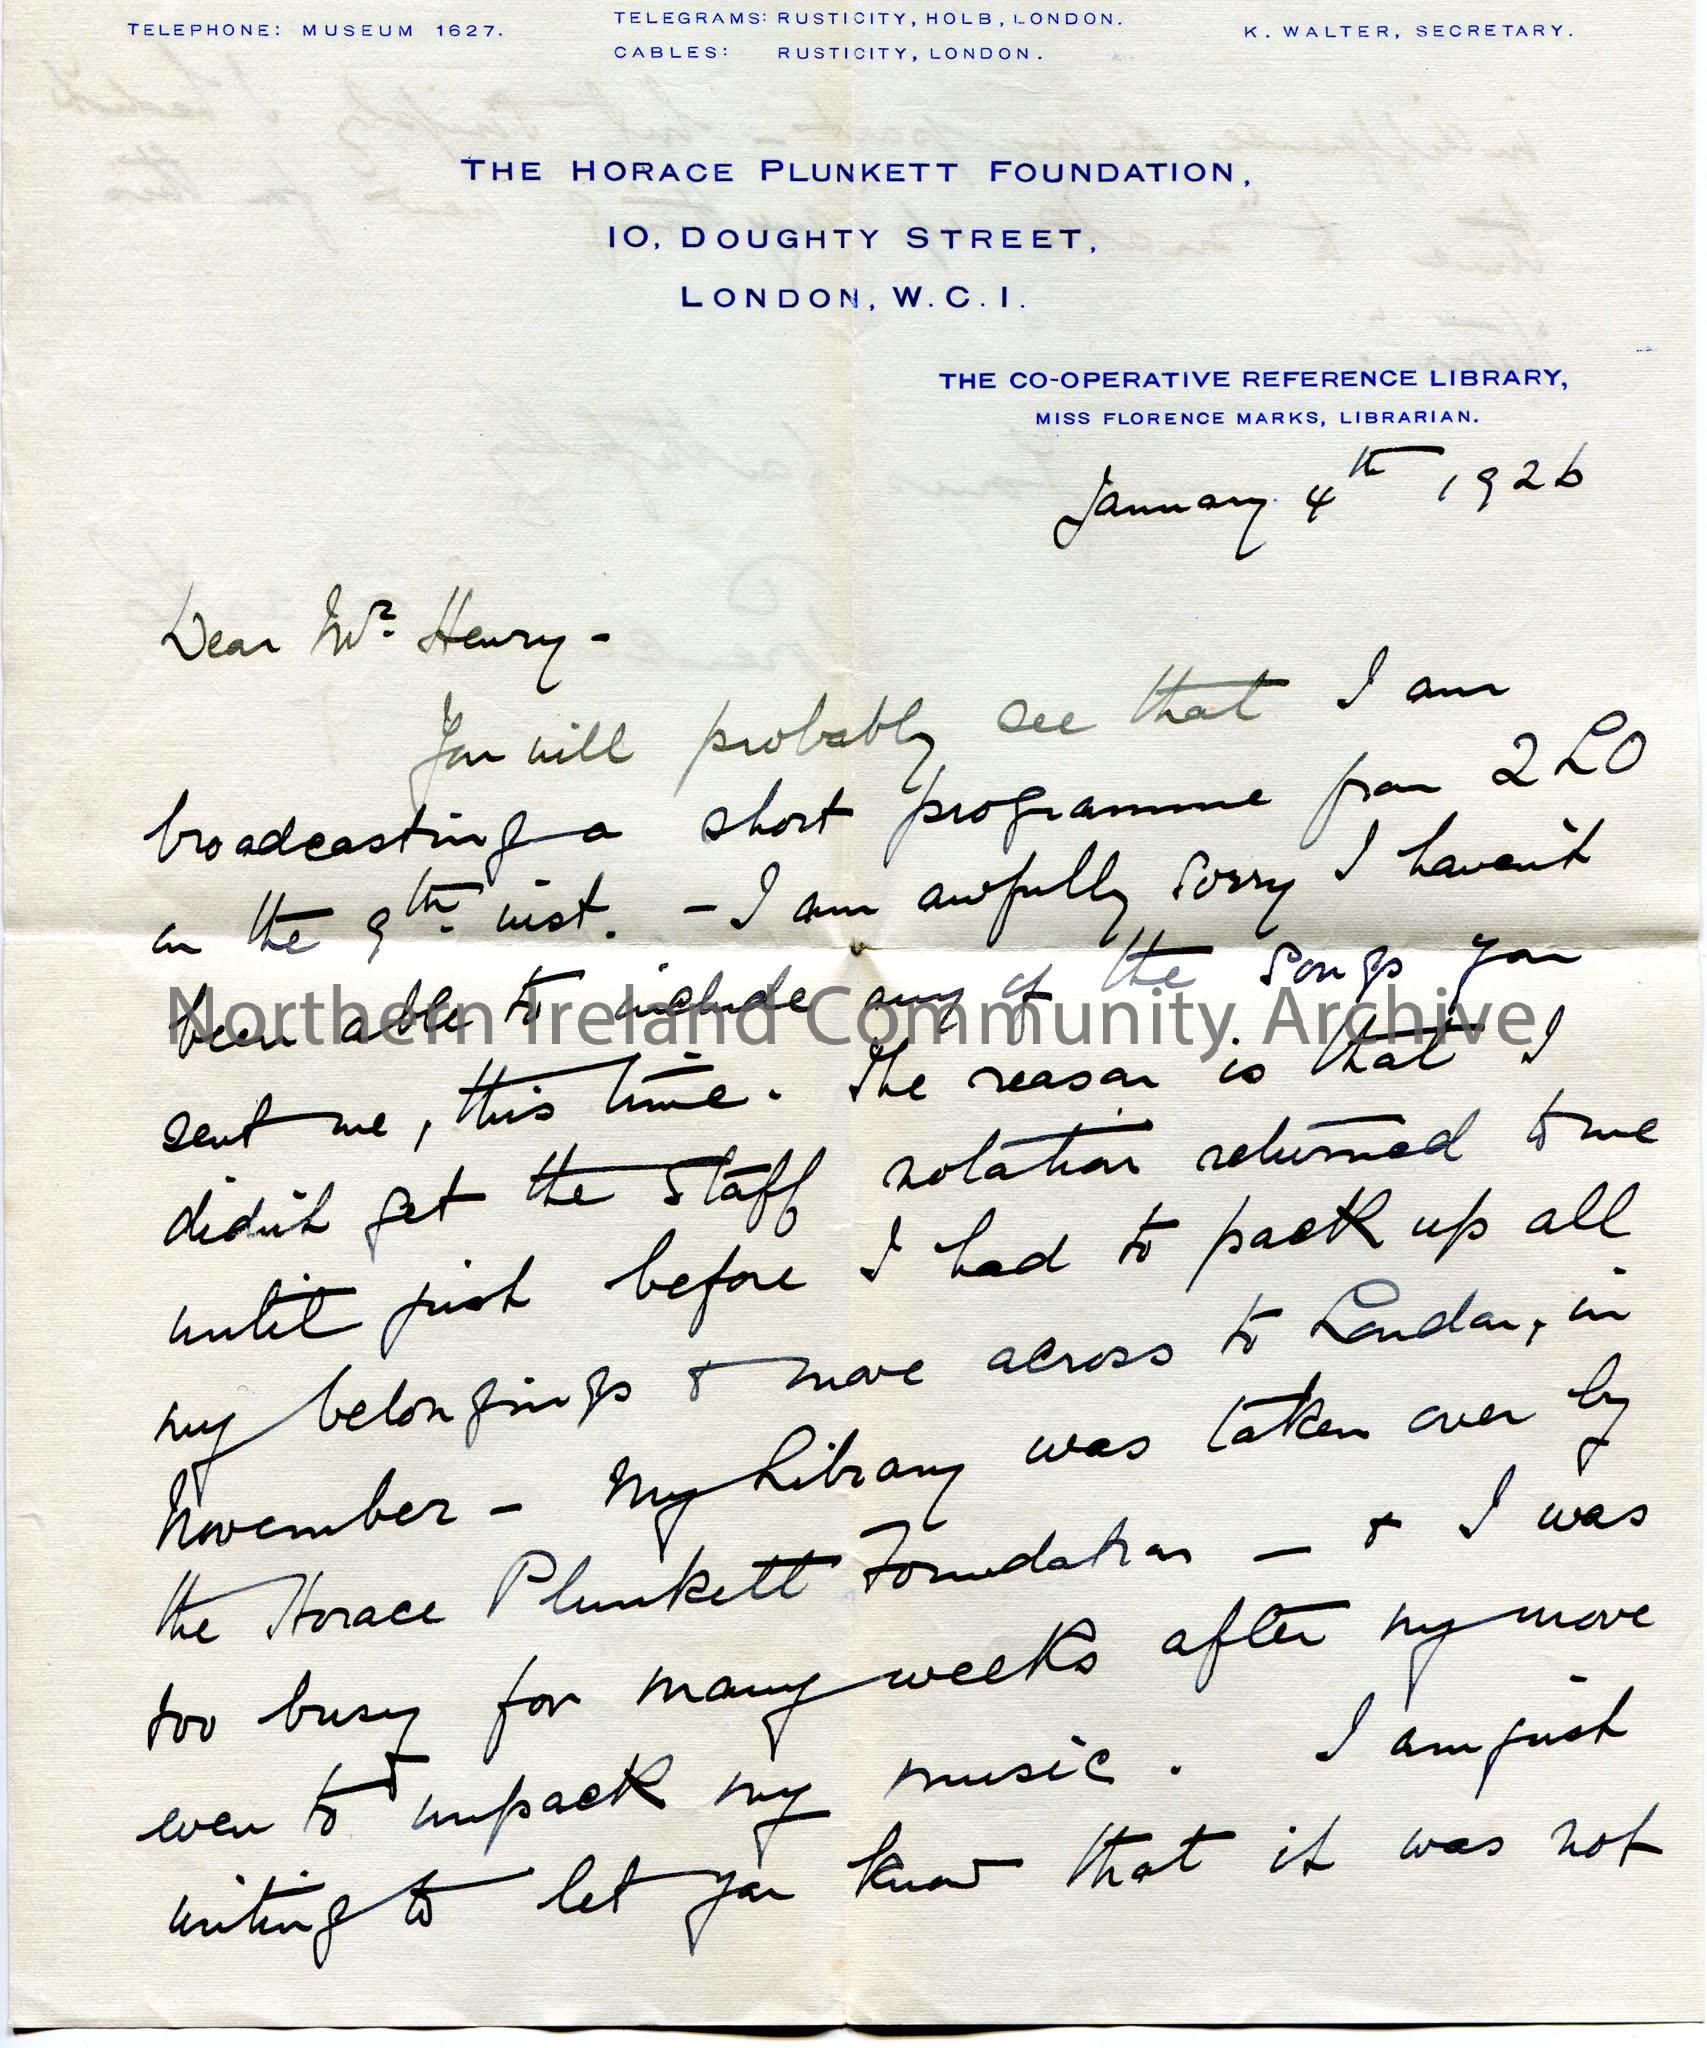 TELEPHONE: MUSEUM 1627.
TELEGRAMS: RUSTICITY, HOLB, LONDON.
CABLES: RUSTICITY, LONDON.
K. WALTER, SECRETARY.
THE HORACE PLUNKETT FOUNDATION,
10, DOUGHTY STREET,
LONDON, W.C.1.
THE CO-OPERATIVE REFERENCE LIBRARY,
MISS FLORENCE MARKS, LIBRARIAN.
January 4th 1926
Dear Mr. Henry -
You will probably see that I am
broadcasting a short programme from 2LO
on the 9th. inst. - I am awfully sorry I haven't
been able to include any of the songs you
Northern Ireland Community Archive
sent me, this time. The reason is that I
didn't get the staff notation returned to me
until just before I had to pack up all
my belongings & move across to London, in
November - My Library was taken over by
the Horace Plunkett Foundation - & I was
too busy for many weeks after my move
even to unpack my music. I am just
writing to let you know that it was not